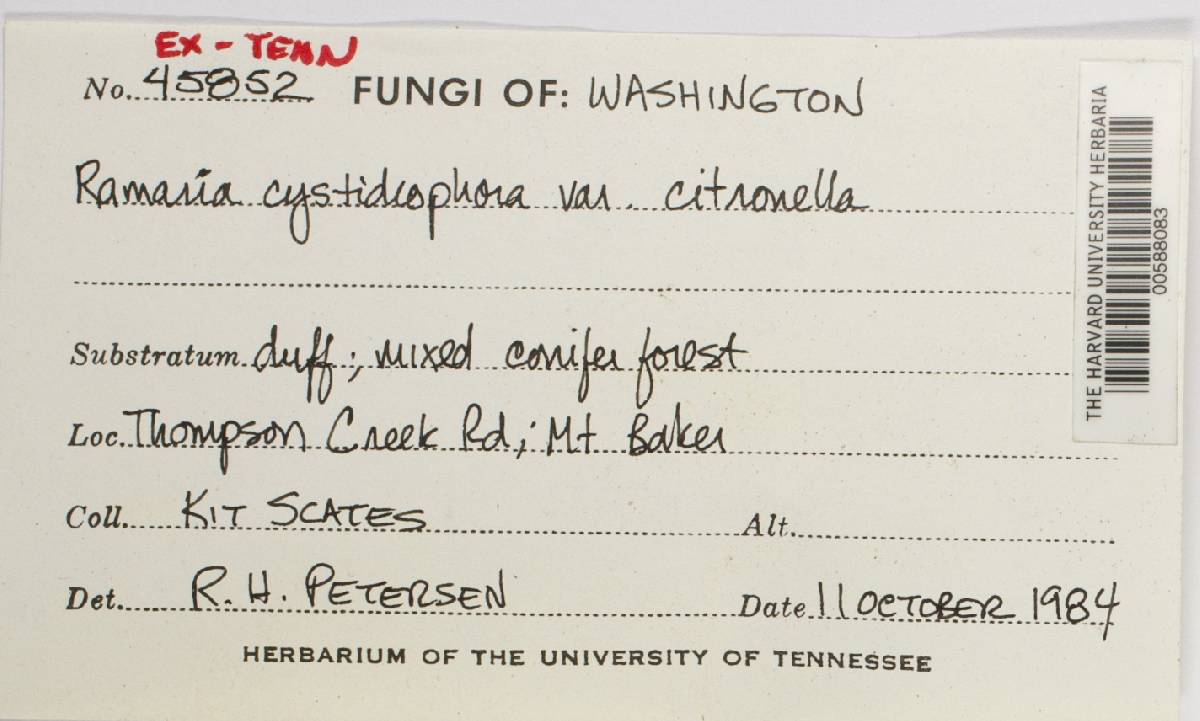 EX-TENN
No. 45852 FUNGI OF: WASHINGTON
Ramaria cystidiophora var. citronella
Substratum duff; mixed conifer forest
Loc. Thompson Creek Rd,; Mt Baker
Coll. KIT SCATES Alt.
Det. R. H. PETERSEN Date 11 OCTOBER 1984
HERBARIUM OF THE UNIVERSITY OF TENNESSEE
THE HARVARD UNIVERSITY HERBARIA
00588083